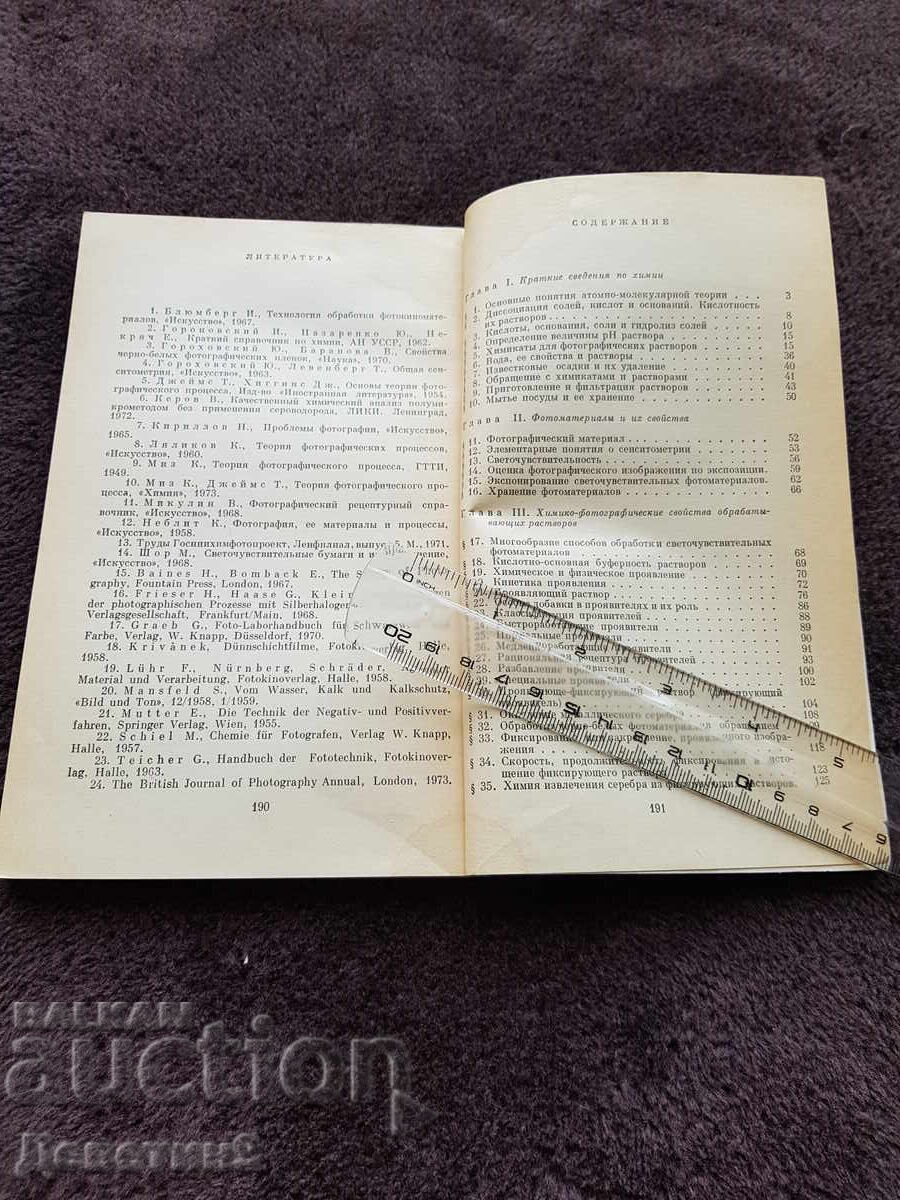 ЛИТЕРАТУРА
1. Блюмберг И., Технология обработки фотокиномате-
риалов, «Искусство», 1967.
2. Гороновский И., Назаренко Ю., Не-
кряч Е., Краткий справочник по химии, АН УССР, 1962.
3. Гороховский Ю., Баранова В., Свойства
черно-белых фотографических пленок, «Наука», 1970.
4. Гороховский Ю., Левенберг Т., Общая сен-
ситометрия, «Искусство», 1963.
5. Джеймс Т., Хиггинс Дж., Основы теории фото-
графического процесса. Изд-во «Иностранная литература», 1954.
6. Керов В., Качественный химический анализ полуми-
крометодом без применения сероводорода, ЛИКИ. Ленинград,
1972.
7. Кириллов Н., Проблемы фотографии, «Искусство»,
1965.
8. Ляликов К., Теория фотографических процессов,
«Искусство», 1960.
9. Миз К., Теория фотографического процесса, ГТТИ,
1949.
10. Миз К., Джеймс Т., Теория фотографического процес-
са, «Химия», 1973.
11. Микулин В., Фотографический рецептурный спра-
вочник, «Искусство», 1968.
12. Неблит К., Фотография, ее материалы и процессы,
«Искусство», 1958.
13. Труды Госниихимфотопроект, Ленфилиал, выпуск 5, М., 1971.
14. Шор М., Светочувствительные бумаги и их
«Искусство», 1968.
15. Baines H., Bomback E., The
graphy, Fountain Press, London, 1967.
16. Frieser H., Haase G., Klein
der photographischen Prozesse mit Silberhalogen
Verlagsgesellschaft, Frankfurt/Main, 1968.
17. Graeb G., Foto-Laborhandbuch für
Farbe, Verlag W. Knapp, Düsseldorf, 1970.
18. Krivánek, Dünnschichtfilme, Halle,
1958.
19. Lühr F., Nürnberg, Schräder,
Material und Verarbeitung, Fotokinoverlag, Halle, 1958.
20. Mansfeld S., Vom Wasser, Kalk und Kalkschutz,
«Bild und Ton», 12/1958, 1/1959.
21. Mutter E., Die Technik der Negativ- und Positivver-
fahren, Springer Verlag, Wien, 1955.
22. Schiel M., Chemie für Fotografen, Verlag W. Knapp,
Halle, 1957.
23. Teicher G., Handbuch der Fototechnik, Fotokinover-
lag, Halle, 1963.
24. The British Journal of Photography Annual, London, 1973.
190
СОДЕРЖАНИЕ
Глава I. Краткие сведения по химии
1. Основные понятия атомно-молекулярной теории . . . 3
2. Диссоциация солей, кислот и оснований. Кислотность
их растворов . . . 8
3. Кислоты, основания, соли и гидролиз солей . . . 10
4. Определение величины pH раствора . . . 15
5. Химикаты для фотографических растворов . . . 15
6. Вода, ее свойства и растворы . . . 36
7. Известковые осадки и их удаление . . . 40
8. Обращение с химикатами и растворами . . . 41
9. Приготовление и фильтрация растворов . . . 43
10. Мытье посуды и ее хранение . . . 50
Глава II. Фотоматериалы и их свойства
§ 11. Фотографический материал . . . 52
§ 12. Элементарные понятия о сенситометрии . . . 53
§ 13. Светочувствительность . . . 56
§ 14. Оценка фотографического изображения по экспозиции. 59
§ 15. Экспонирование светочувствительных фотоматериалов. 62
§ 16. Хранение фотоматериалов . . . 66
Глава III. Химико-фотографические свойства обрабаты-
вающих растворов
§ 17. Многообразие способов обработки светочувствительных
фотоматериалов . . . 68
§ 18. Кислотно-основная буферность растворов . . . 70
§ 19. Химическое и физическое проявление . . . 71
Кинетика проявления . . . 72
раствор . . . 76
22. добавки в проявители и их роль . . . 78
проявителей . . . 86
проявители . . . 88
25. Нормальные проявители . . . 90
26. проявители
27. Рациональная рецептура проявителей . . . 93
28. проявление . . . 100
29. Специальные проявители . . . 102
фиксирующий раствор
104
§ 31. металлического серебра . . . 108
§ 32. фотоматериалов обращением
§ 33. Фиксирование изобра-
жения . . . 118
§ 34. Скорость, фиксирования и исто-
щение фиксирующего . . . 123
§ 35. Химия извлечения серебра из растворов. 125
191
INCH
0 1 2 3 4 5
20 19 18 17 16 15 14 13 12 11 10 9 8 7 6
BALKAN
auction
Деветин2